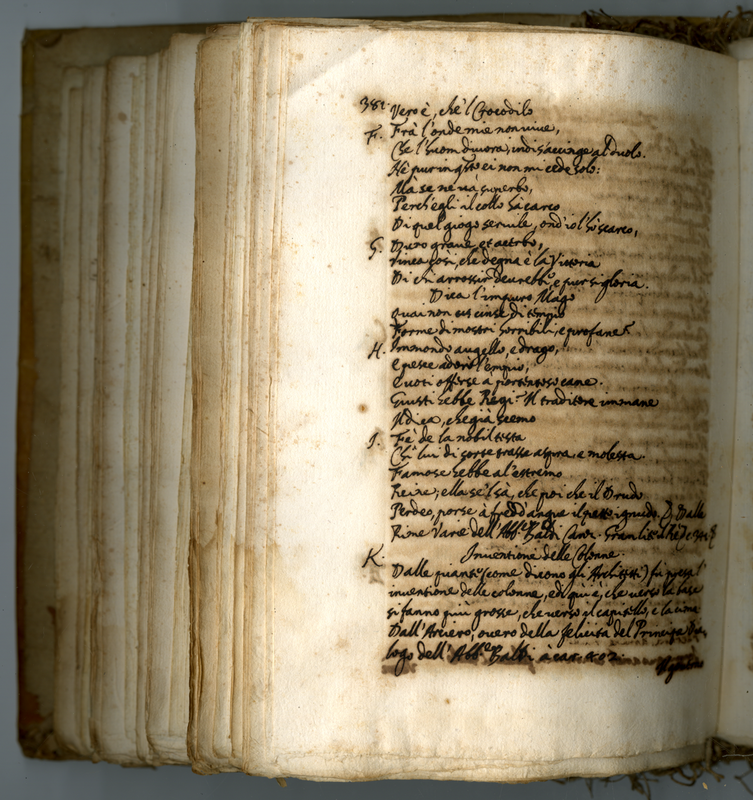 381. Vero è, che'l Crocodilo
F. Frà l'onde mie non viue,
Che l'huom diuora, indi s'accinge al duolo.
Nè pur in ei non mi cede solo:
Mà se ne uà superbo,
Perch'egli il collo hà carco
Di quel giogo seruile, ond'io l'hò scarco,
G. Duro graue, et acerbo,
così, che degna è la Vittoria
Di chi arrossir deurebbe, e pur si gloria.
Dica l'impuro Mago
quai non cinse di tempio
Forme di mostri horribili, e profane?
H. Immondo augello, e drago,
e pesce adorò l'empio,
e uoti offerse a portentoso cane.
Giusti hebbe Regi? Il traditore immane
Il dica, che già scemo
I. Fè de la nobil testa
Chi lui di sorte trasse aspra, e molesta.
Famose hebbe al'estremo
Reine; ella se'l sà, che poi che il Drudo
Perdeo, porse à angue il petto ignudo. Dalle
Rime Varie dell'Abb.e Baldi
K. Inuentione delle Colonne.
Dalle piante (come dicono gli Architetti) fù presa l'
inuentione delle colonne, e di quì è, che uerso la base
si fanno più grosse, che uerso il capitello, e la cima
Dall'Arciero, ouero della felicità del Principe Dia
logo dell'Abb.e Baldi à car.